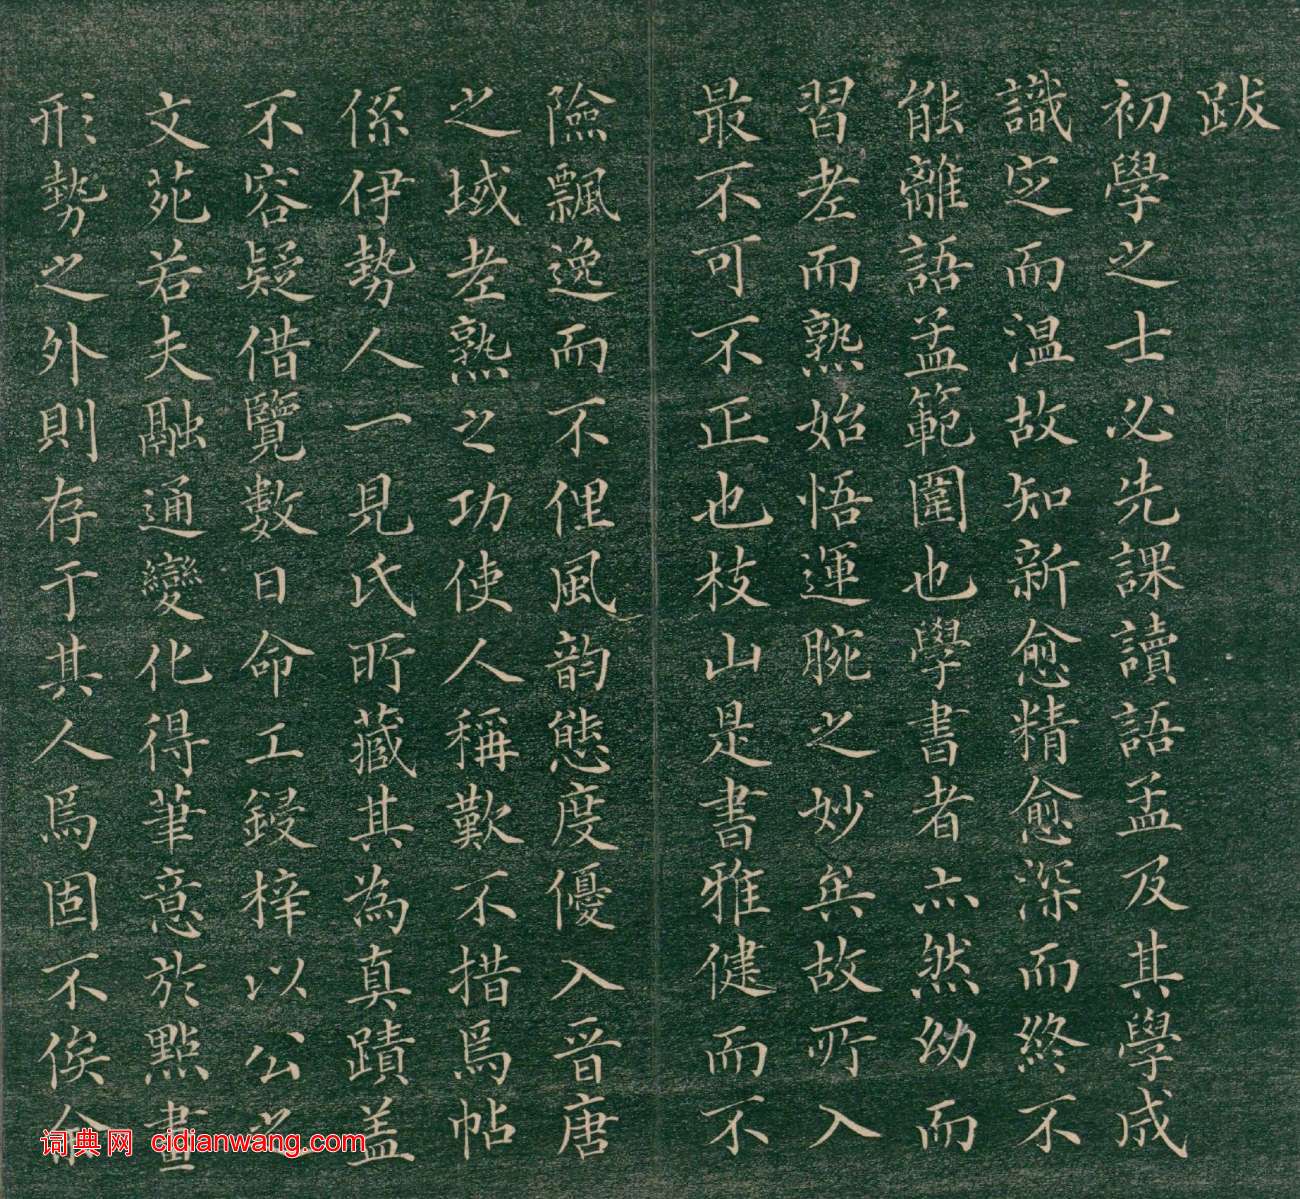 跋
初學之士必先課讀語孟及其學成
識定而温故知新愈精愈深而終不
能離語孟範圍也學書者亦然幼而
習老而熟始悟運腕之妙矣故所入
最不可不正也枝山是書雅健而不
險飄逸而不俚風韵態度優入晋唐
之域老熟之功使人稱歎不措焉帖
係伊勢人一見氏所藏其為真蹟盖
不容疑借覽數日命工鋟梓以公之
文苑若夫融通變化得筆意於點畫
形勢之外則存于其人焉固不俟
词典网 cidianwang.com